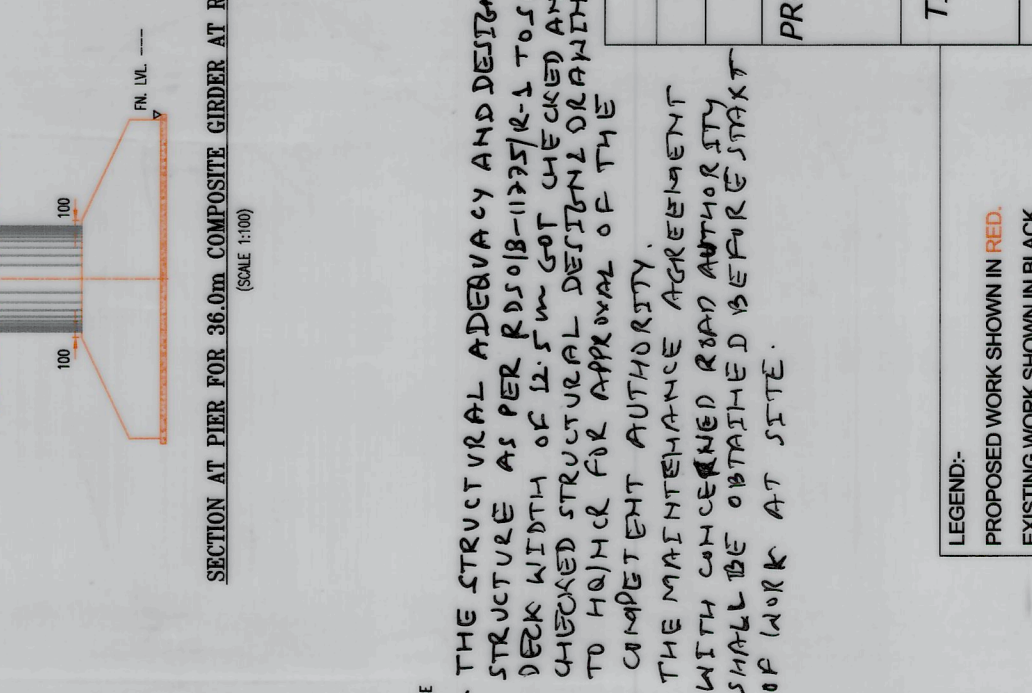 100
100
FN. LVL. ---
SECTION AT PIER FOR 36.0m COMPOSITE GIRDER AT R
(SCALE 1:100)
THE STRUCTURAL ADEQUACY AND DESIGN
STRUCTURE AS PER RDSO/B-11775/R-1 TO5
DECK WIDTH OF 12.5m GOT CHECKED AN
CHECKED STRUCTURAL DESIGN & DRAWIN
TO HQ/NCR FOR APPROVAL OF THE
COMPETENT AUTHORITY.
THE MAINTENANCE AGREEMENT
WITH CONCERNED ROAD AUTHORITY
SHALL BE OBTAINED BEFORE START
OF WORK AT SITE.
PR
T.
LEGEND:-
PROPOSED WORK SHOWN IN RED.
EXISTING WORK SHOWN IN BLACK
E